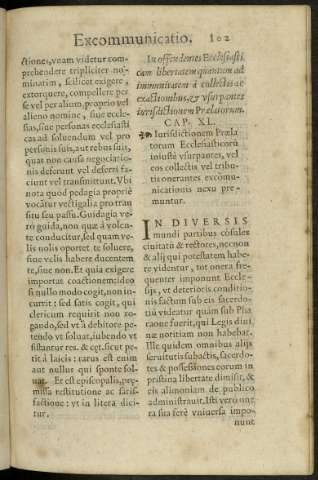 Excommunicatio. 102
ctiones, vnam videtur com-
prehendere tripliciter no-
minatim, scilicet exigere,
extorquere, compellere per
se vel per alium, proprio vel
alieno nomine, siue eccle-
sias, siue personas ecclesiasti
cas ad soluendum vel pro
personis suis, aut rebus suis,
quas non causa negociatio-
nis deferunt vel deferri fa-
ciunt vel transmittunt. Vbi
nota quod pedagia proprie
vocãtur vectigalia pro tran
situ seu passu. Guidagia ve-
ro guida, non quæ à volen-
te conducitur, sed quam ve-
lis nolis oportet te soluere,
siue velis habere ducentem
te, siue non. Et quia exigere
importat coactionem: ideo
si nullo modo cogit, non in-
currit: sed satis cogit, qui
clericum requirit non ro-
gando, sed vt à debitore pe-
tendo vt soluat, iubendo vt
sistantur res. & cęt. sicut pe-
tit à laicis: rarus est enim
aut nullus qui sponte sol-
uat. Et est episcopalis, prę-
missa restitutione ac satis-
factione: vt in litera dici-
tur.
In offendentes Ecclesiasti-
cam libertatem quantum ad
immunitatem à collectis ac
exactionibus, & vsurpantes
iurisdictionem Prælatorum.
CAP. XL.
Iurisdictionem Præla
torum Ecclesiasticorũ
iniustè vsurpantes, vel
eos collectis vel tribu-
tis onerantes excõmu-
nicationis nexu pre-
muntur.
IN DIVERSIS
mundi partibus cõsules
ciuitatũ & rectores, necnon
& alij qui potestatem habe-
re videntur, tot onera fre-
quenter imponunt Eccle-
sijs, vt deterioris conditio-
nis factum sub eis sacerdo-
tiũ videatur quàm sub Pha
raone fuerit, qui Legis diui
næ notitiam non habebat.
Ille quidem omnibus alijs
seruituti subactis, sacerdo-
tes & possessiones eorum in
pristina libertate dimisit, &
eis alimoniam de publico
administrauit. Isti verò one
ra sua ferè vniuersa impo-
nunt